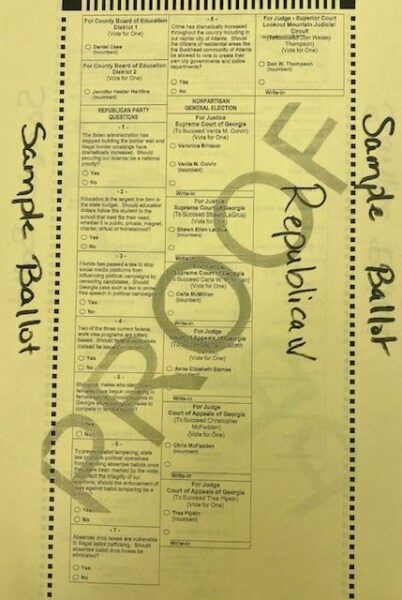 For County Board of Education
District 1
(Vote for One)
Daniel Case
(Incumbent)
For County Board of Education
District 2
(Vote for One)
Jennifer Hester Hartline
(Incumbent)
REPUBLICAN PARTY
QUESTIONS
- 1 -
The Biden administration has
stopped building the border wall and
illegal border crossings have
dramatically increased. Should
securing our boarder be a national
priority?
Yes
No
- 2 -
Education is the largest line item in
the state budget. Should education
dollars follow the student to the
school that best fits their need,
whether it is public, private, magnet,
charter, virtual or homeschool?
Yes
No
- 3 -
Florida has passed a law to stop
social media platforms from
influencing political campaigns by
censoring candidates. Should
Georgia pass such a law to protect
free speech in political campaigns?
Yes
No
- 4 -
Two of the three current federal
work visa programs are lottery
based. Should
instead be
Yes
No
- 5 -
Biological males who identify as
females have begun competing in
female
Georgia
to compete in female sports?
Yes
No
- 6 -
To prevent ballot tampering, state
law political operatives
from handling absentee ballots once
they have been marked by the voter.
To protect the integrity of our
elections, should the enforcement of
laws against ballot tampering be a
priority?
Yes
No
- 7 -
Absentee drop boxes are vulnerable
to illegal ballot trafficking. Should
absentee ballot drop boxes be
eliminated?
Yes
No
- 8 -
Crime has dramatically increased
throughout the country including in
our capital city of Atlanta. Should
the citizens of residential areas
like the Buckhead community of Atlanta
be allowed to vote to create their
own city governments and police
departments?
Yes
No
NONPARTISAN
GENERAL ELECTION
For Justice
Supreme Court of Georgia
(To Succeed Verda M. Colvin)
(Vote for One)
Veronica Brinson
Verda M. Colvin
(Incumbent)
Write-in
For Justice
Supreme Court of Georgia
(To Succeed Shawn LaGrua)
(Vote for One)
Shawn Ellen LaGrua
(Incumbent)
Write-in
For Justice
Supreme Court of Georgia
(To Succeed Carla W.
(Vote for One)
Carla McMillian
(Incumbent)
Write-in
For Judge
Court of Appeals of Georgia
(To Succeed Anne Elizabeth
Barnes)
(Vote for One)
Anne Elizabeth Barnes
(Incumbent)
Write-in
For Judge
Court of Appeals of Georgia
(To Succeed Christopher
McFadden)
(Vote for One)
Chris McFadden
(Incumbent)
Write-in
For Judge
Court of Appeals of Georgia
(To Succeed Trea Pipkin)
(Vote for One)
Trea Pipkin
(Incumbent)
Write-in
For Judge - Superior Court
Lookout Mountain Judicial
Circuit
(To Succeed Don Wesley
Thompson)
(Vote for One)
Don W. Thompson
(Incumbent)
Write-in
PROOF
Sample Ballot
Republican
Sample Ballot